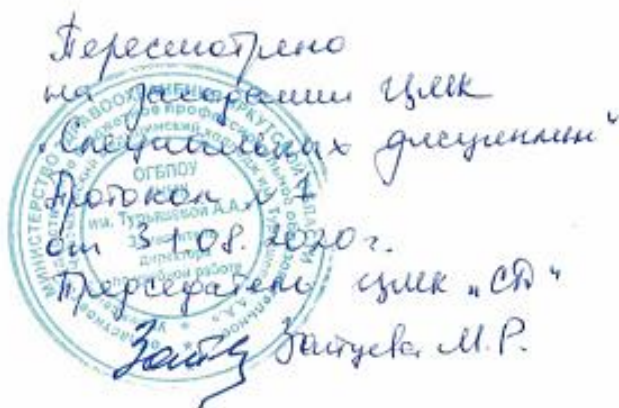 Пересмотрено
на заседании ЦМК
„Специальных дисциплин"
Протокол № 1
от 31.08.2020г.
Председатель ЦМК „СД"
Зайцева М.Р.
МИНИСТЕРСТВО ЗДРАВООХРАНЕНИЯ ИРКУТСКОЙ ОБЛАСТИ
ОГБПОУ
им. Турышевой А.А.
Заместитель
директора
по учебной работе